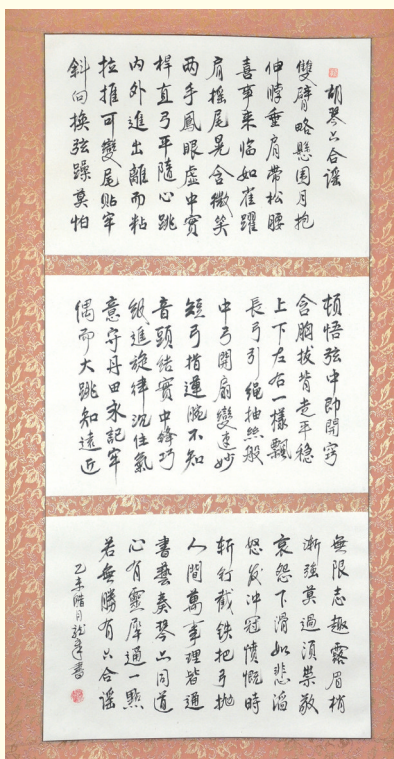 胡琴六合谣
雙臂略懸圆月抱
伸脖垂肩带松腰
喜事来临如雀躍
肩摇尾晃含微笑
两手鳳眼虚中實
桿直弓平隨心跳
内外進出離而粘
拉推可變尾贴牢
斜向换弦躁莫怕
頓悟弦中即開窍
含胸拔背走平稳
上下左右一樣飘
長弓引绳抽丝般
中弓開扇變速妙
短弓指連腕不知
音頭结實中鋒巧
级進旋律沉住氣
意守丹田永記牢
偶而大跳知遠近
無限志趣露眉梢
渐强莫過須崇敬
哀怨下滑如悲滔
怒发冲冠愤慨時
斩钉截铁把弓抛
人間萬事理皆通
書藝奏琴六同道
心有靈犀通一點
若無勝有六合谣
乙未腊月書